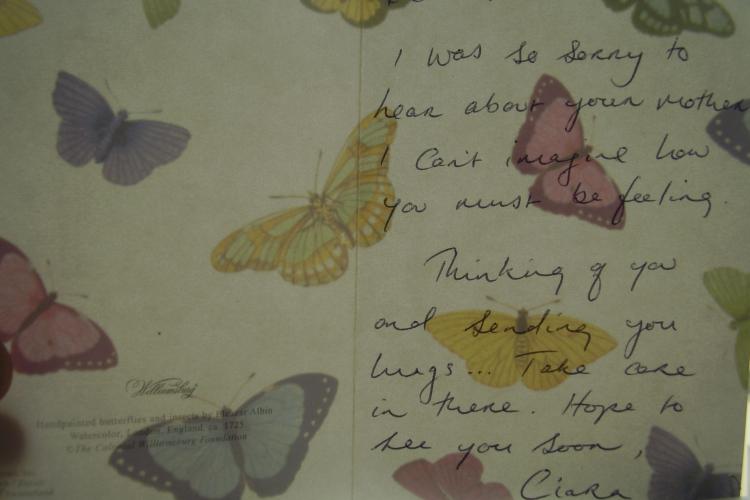 I was so sorry to
hear about your mother
I can't imagine how
you must be feeling.
Thinking of you
and sending you
hugs... Take care
in there. Hope to
see you soon,
Ciara
Williamsburg
Handpainted butterflies and insects by Eleazar Albin
Watercolor, London, England, ca. 1725.
©The Colonial Williamsburg Foundation